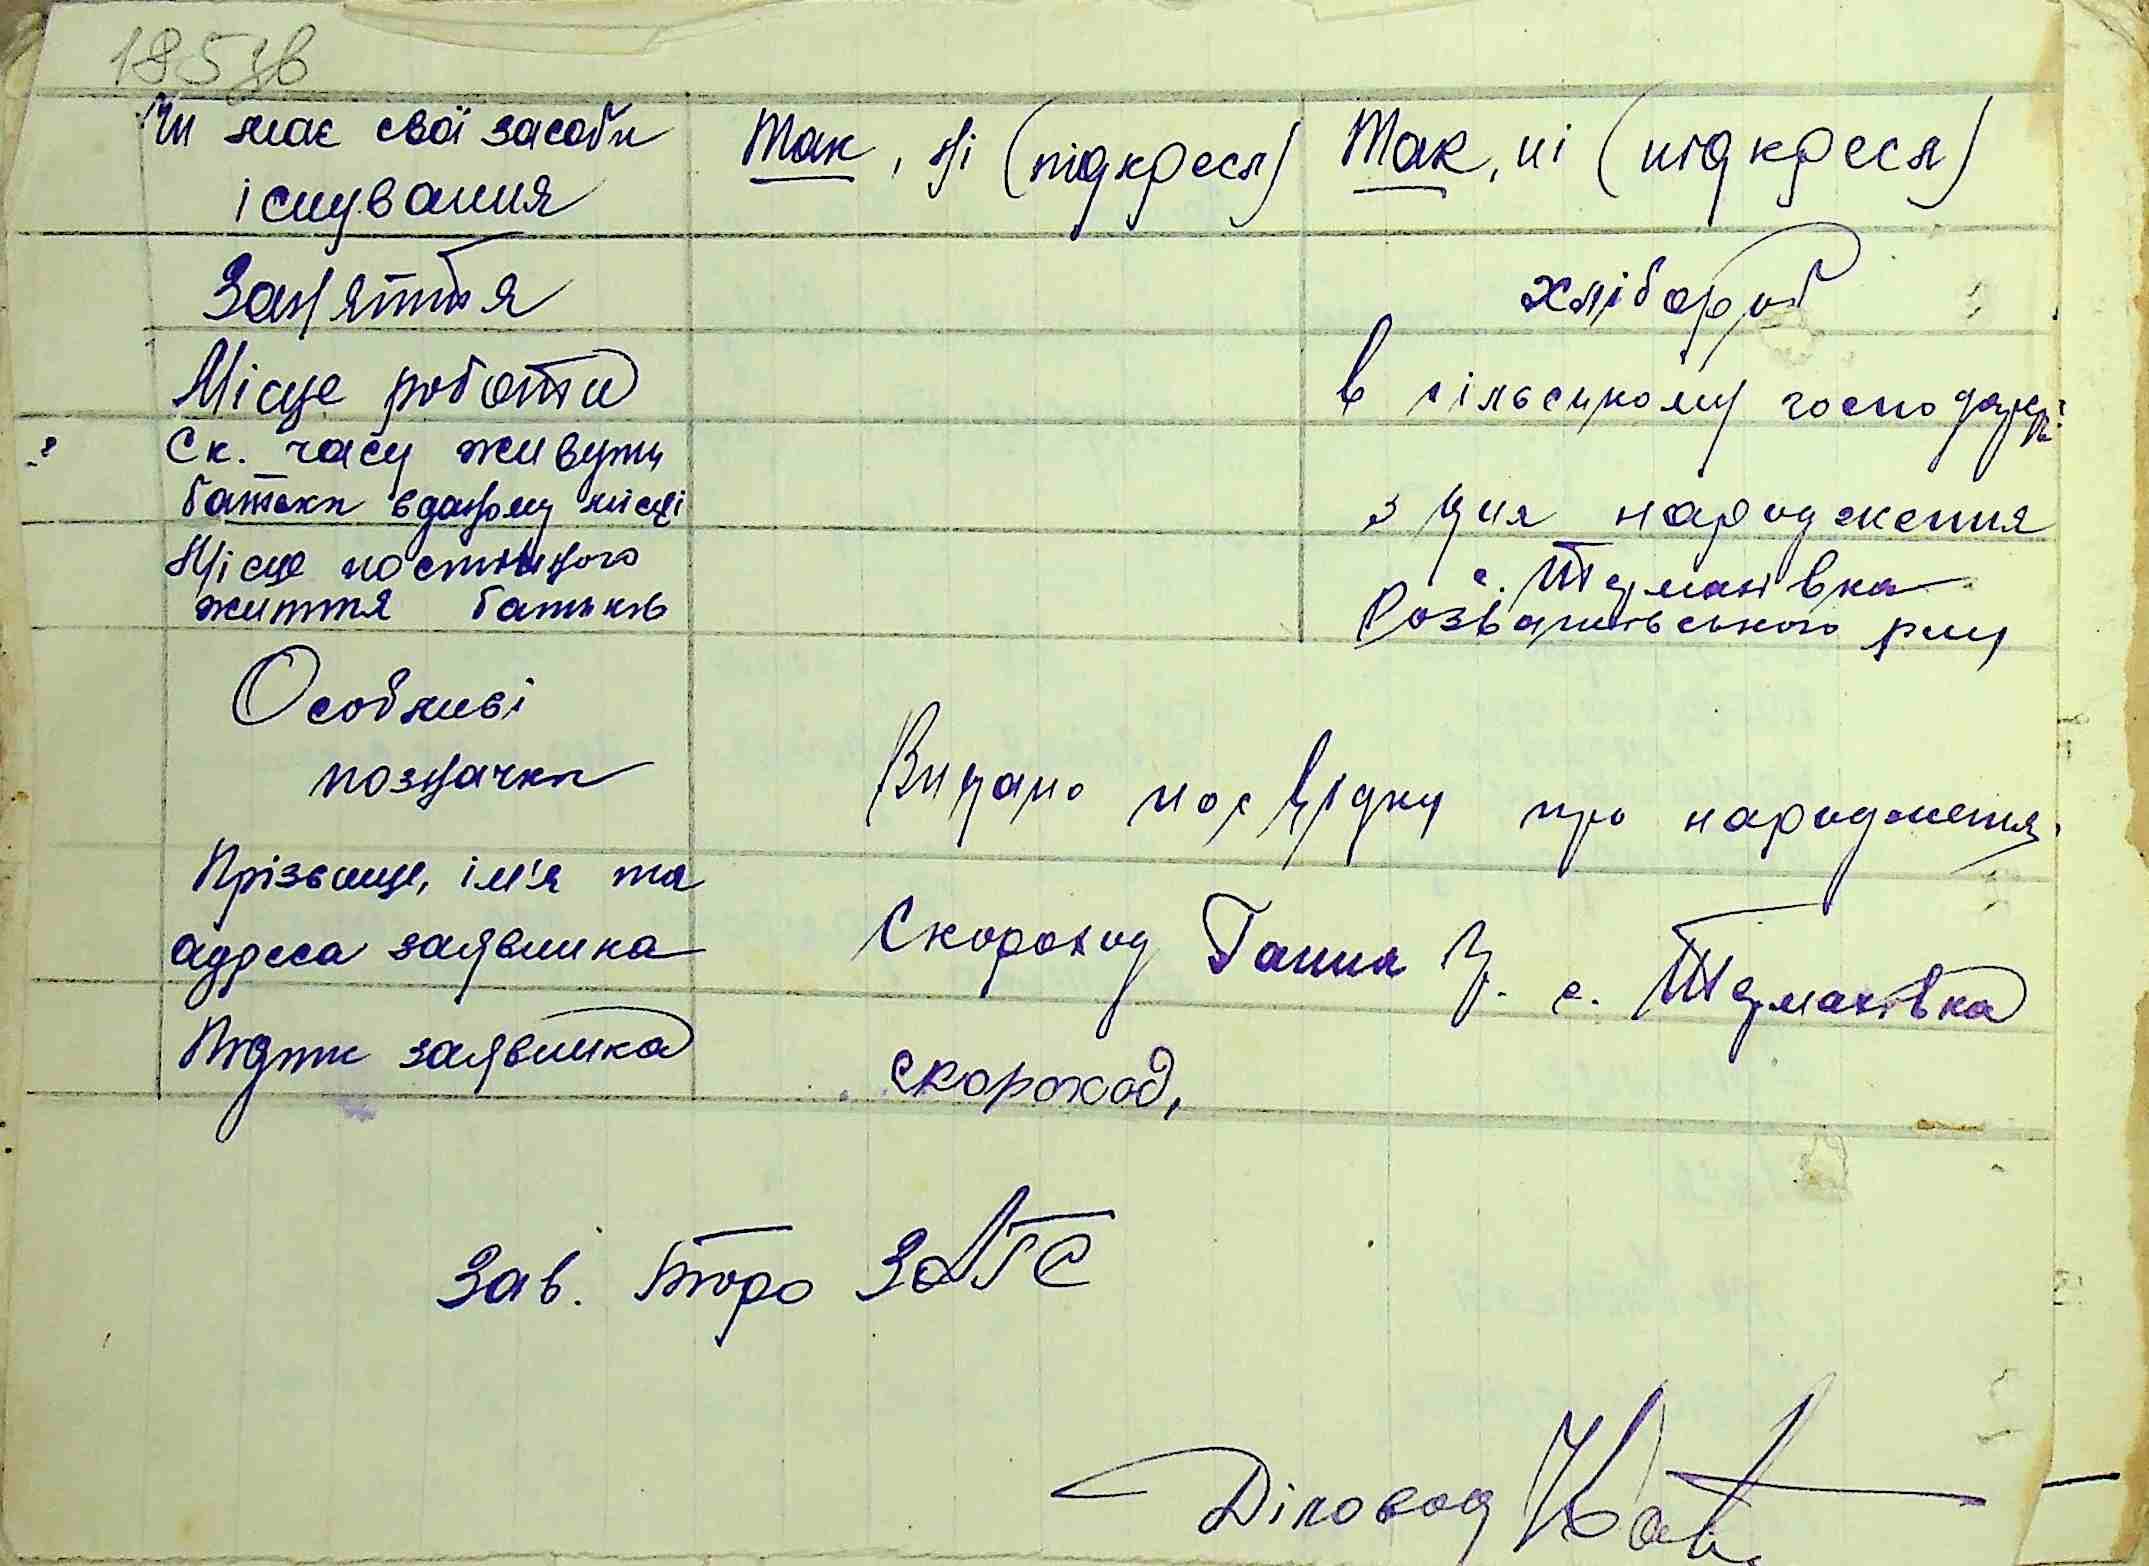 185 зв
Чи має свої засоби
існування
Так, ні (підкресл)
Так, ні (підкресл)
Заняття
хлібороб
Місце роботи
в сільському господарі
Ск. часу живуть
батьки в даному місці
з дня народження
Місце постійного
життя батьків
с. Термахівка
Розважівського р-ну
Особливі
позначки
Видано посвідку про народження
Прізвище, ім'я та
адреса заявника
Скороход Ганна с. Термахівка
Підпис заявника
скороход,
Зав. Бюро ЗАГС
Діловод